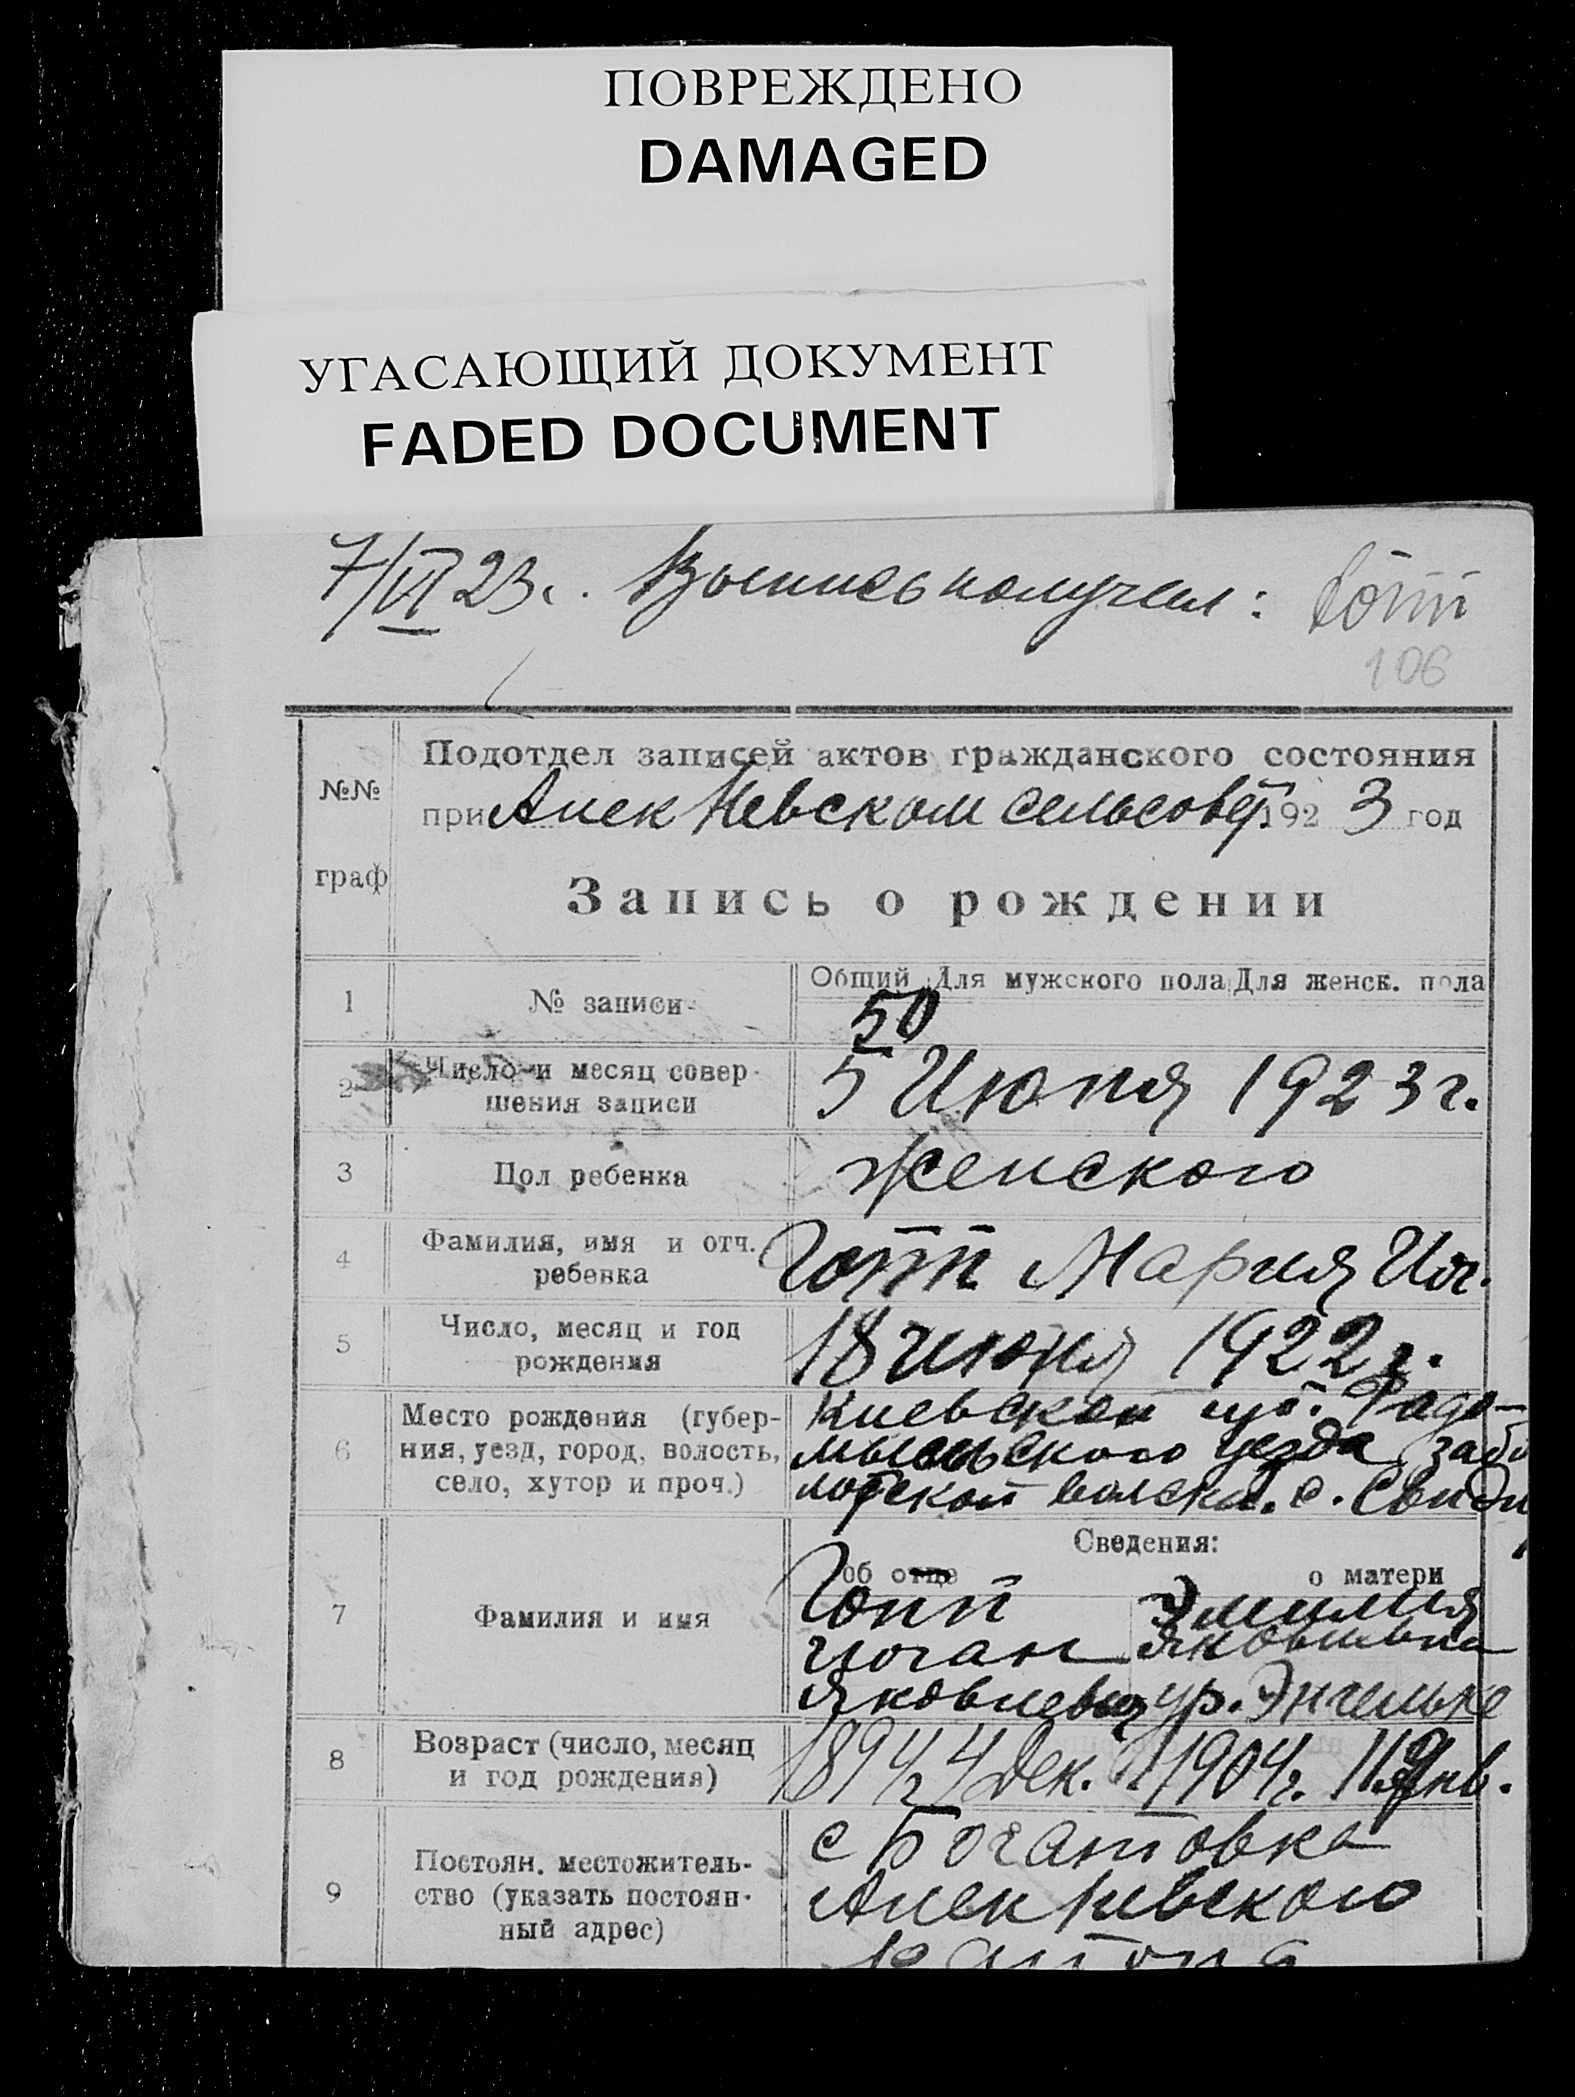 ПОВРЕЖДЕНО
DAMAGED
УГАСАЮЩИЙ ДОКУМЕНТ
FADED DOCUMENT
7/VI 23г. Выпись получил: Готт
106
№№
граф
Подотдел записей актов гражданского состояния
при Алек Невском сельсовет. 1923 год
Запись о рождении
1 № записи Общий Для мужского пола Для женск. пола
50
2 Число и месяц совер-
шения записи
5 Июня 1923 г.
3 Пол ребенка женского
4 Фамилия, имя и отч.
ребенка
Готт Мария Иог.
5 Число, месяц и год
рождения
18 июня 1922 г.
6 Место рождения (губер-
ния, уезд, город, волость,
село, хутор и проч.)
Киевской губ. Радо-
мысльского уезда забо
лотской волости. с.
Сведения:
об отце о матери
7 Фамилия и имя
Готт Эмилия
Иоган Яковлевна
Яковлевич ур. Энгельке
8 Возраст (число, месяц
и год рождения)
1894 г. 4 Дек. 1904 г. Янв.
9 Постоян. местожитель-
ство (указать постоян-
ный адрес)
с Богатовка
Алек Невского
кантона